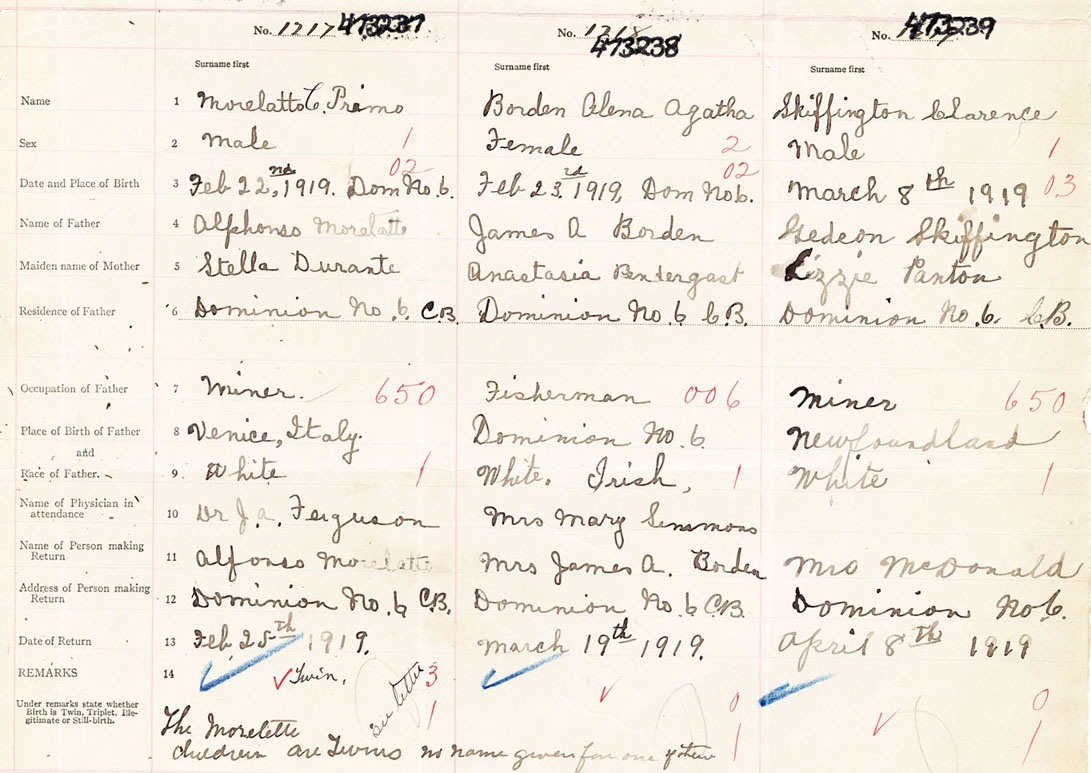 No. 1217 473237 No. 1218 473238 No. 473239
Surname first Surname first Surname first
Name 1 Morelatto C. Primo Borden Alena Agatha Skiffington Clarence
Sex 2 Male 1 Female 2 Male 1
02 02
Date and Place of Birth 3 Feb 22,nd 1919. Dom No. 6. Feb 23.rd 1919, Dom No 6. March 8th 1919 03
Name of Father 4 Alphonso Morelatto James A Borden Gedeon Skiffington
Maiden name of Mother 5 Stella Durante Anastasia Pendergast Lizzie Panton
Residence of Father 6 Dominion No. 6 C.B. Dominion No. 6 C.B. Dominion No. 6. C.B.
Occupation of Father 7 Miner. 650 Fisherman 006 Miner 650
Place of Birth of Father 8 Venice, Italy. Dominion No. 6 Newfoundland
and
Race of Father. 9. White 1 White. Irish, 1 White 1
Name of Physician in
attendance 10 Dr J. A. Ferguson Mrs Mary Simmons
Name of Person making
Return 11 Alfonso Morelatti Mrs James A. Borden Mrs McDonald
Address of Person making
Return 12 Dominion No. 6 C.B. Dominion No. 6 C.B. Dominion No 6.
Date of Return 13 Feb. 25th 1919. March 19th 1919. April 8th 1919
REMARKS 14 Twin. see letter 3
Under remarks state whether
Birth is Twin, Triplet, Ille-
gitimate or Still-birth.
1 0 1 0 1
The Morelette
children are Twins no name given for one of them